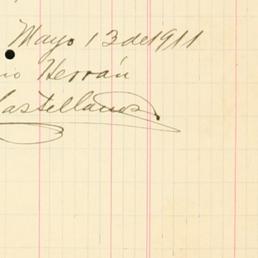 Mayo 13 de 1911
io Herrán
Castellanos